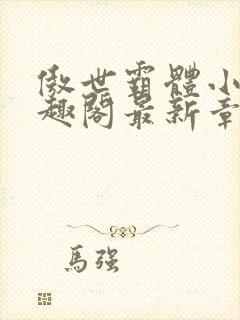 傲世霸體小
趣閣最新章
馬強